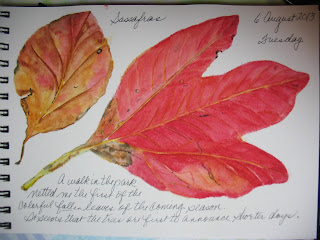 Sassafras
6 August 2013
Tuesday
A walk in the park
netted me the first of the
colorful fallen leaves of the coming season.
It seems that the trees are first to announce shorter days.